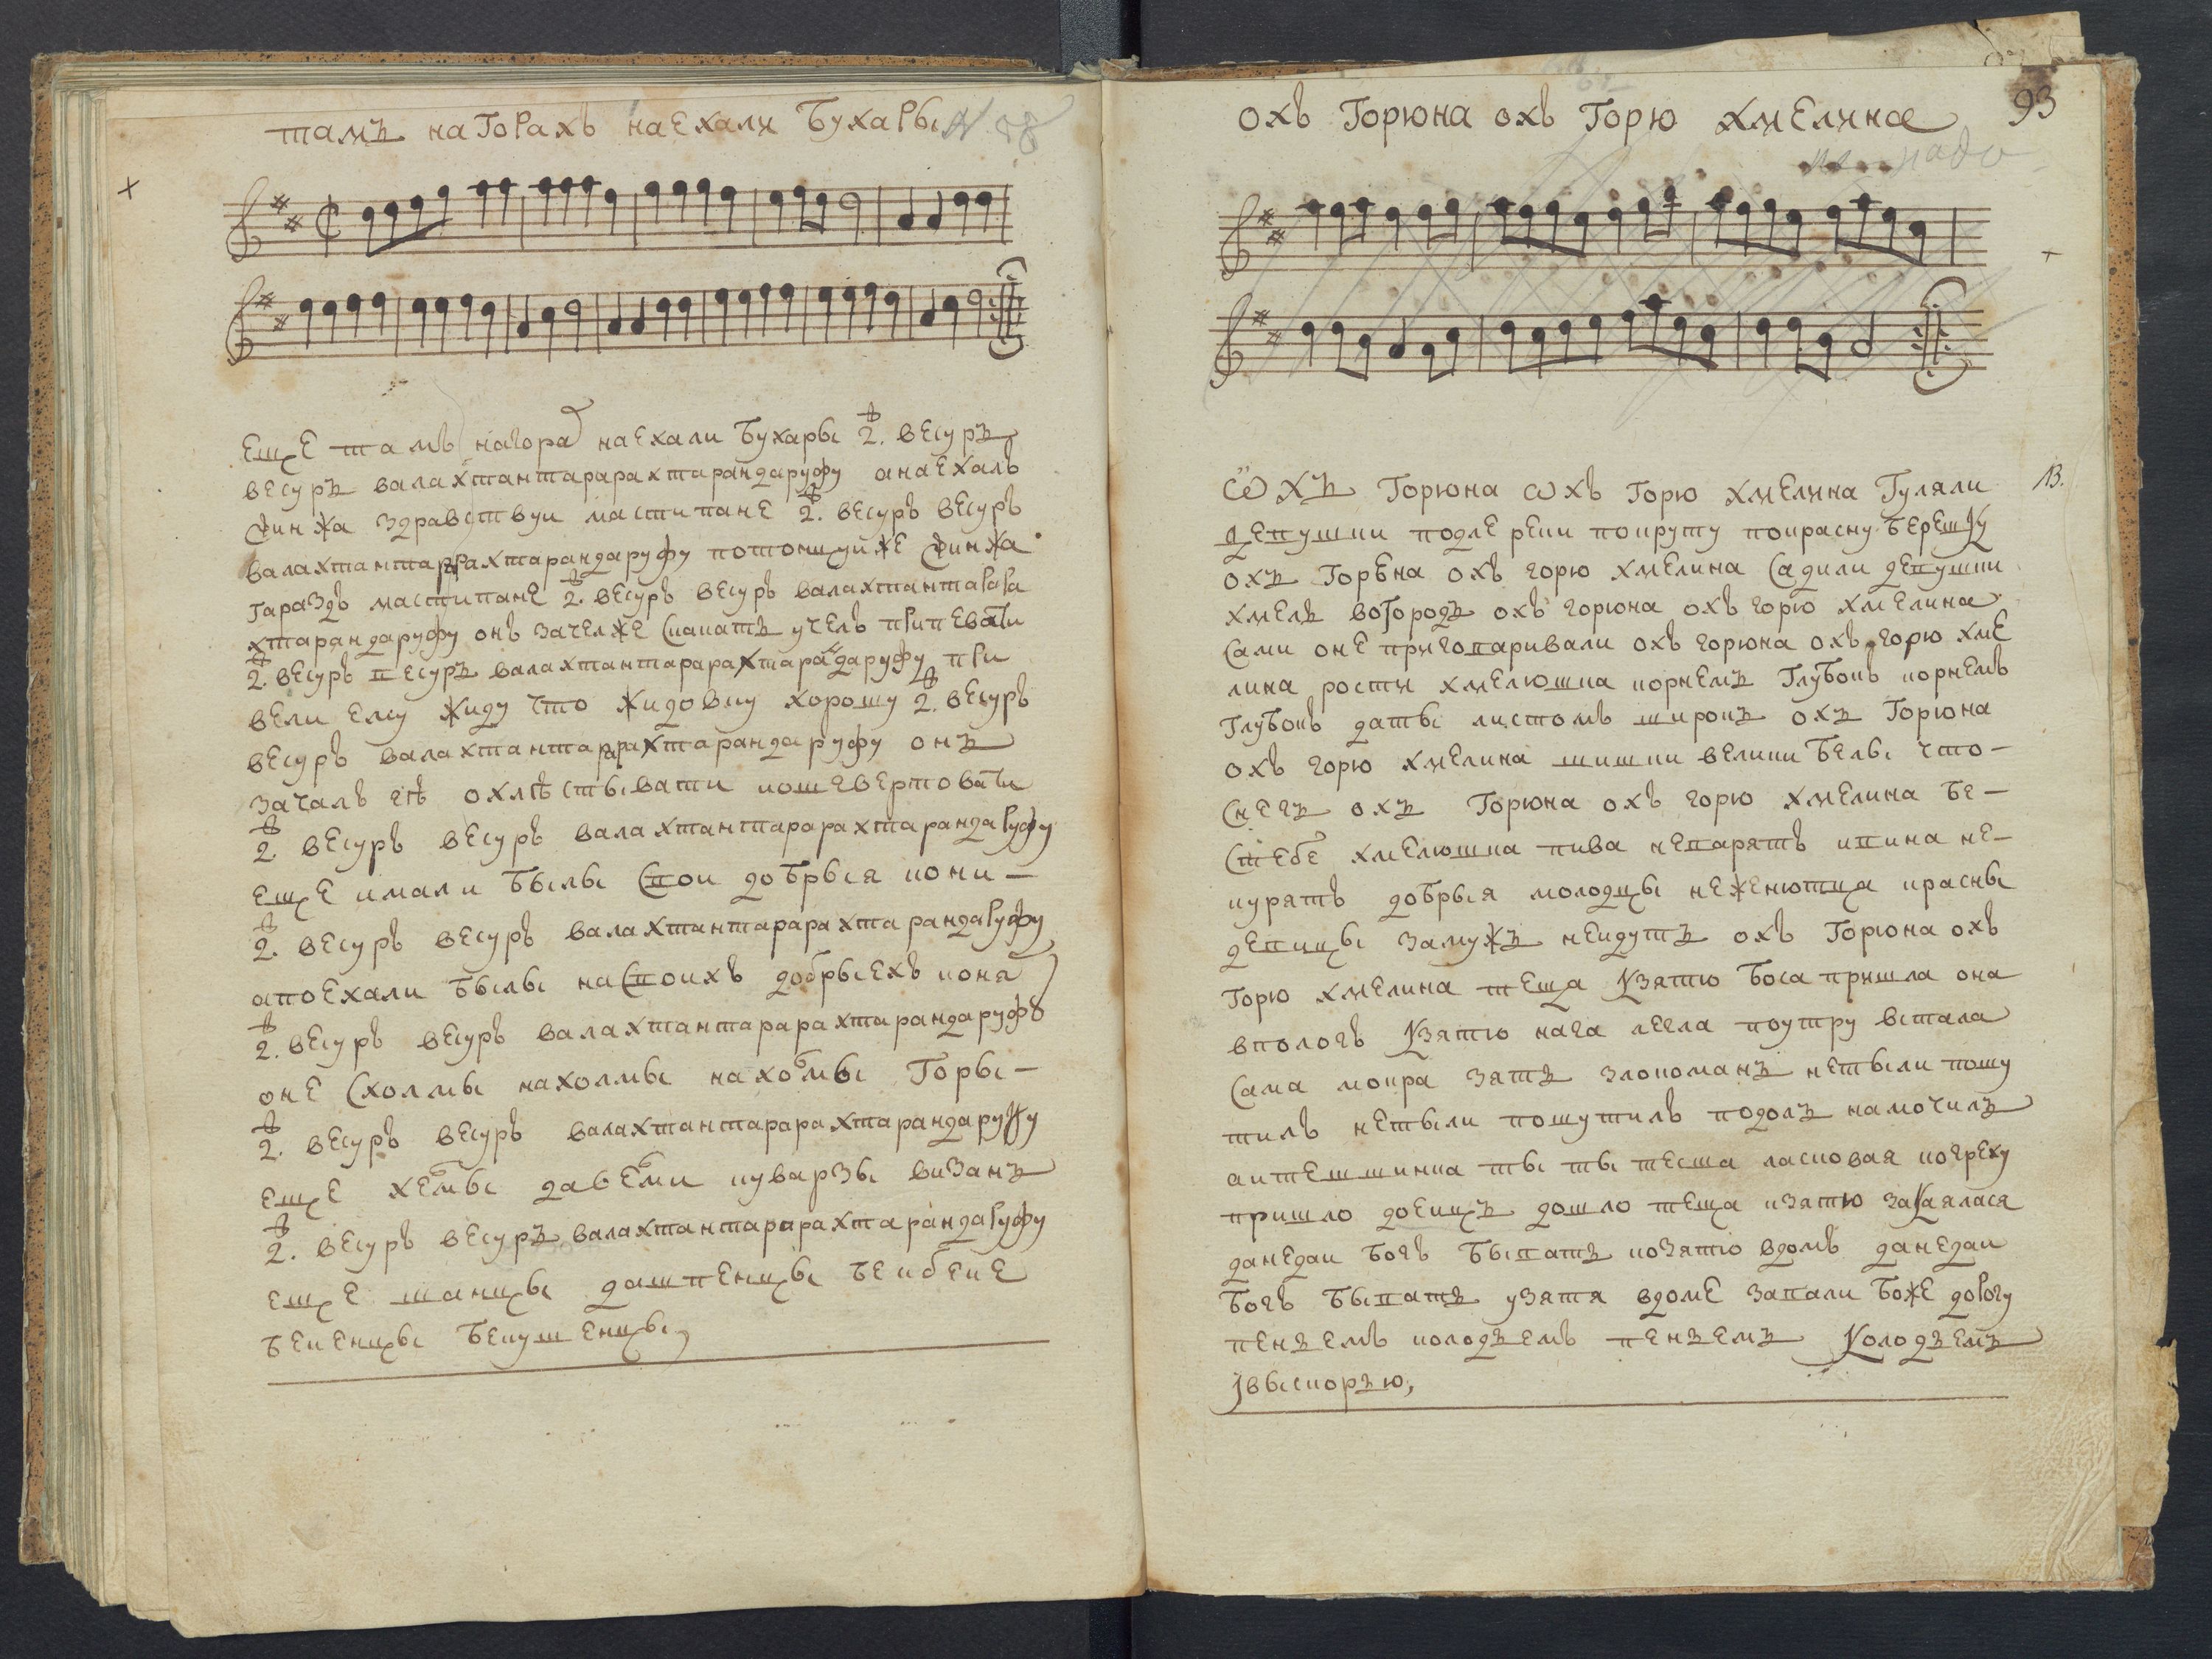 тамъ наГоРахъ наехали БухаРы N 58
еще тамъ нагорах наехали Бухары 2ж весуръ
весуръ валахтантарарахтарандаруфу анаехалъ
Финжа Здравствуи мастипане 2ж весуръ весуръ
валахтантарарахтарандаруфу потомцуиже Финжа
гараздъ мастипане 2ж весуръ весуръ валахтантаРаРа
хтарандаруфу онъ зачелже скакать учелъ пРипевати
2ж весуръ весуръ валахтантарарахтарандаруфу пРи
вели ему жиду что жидовку хорошу 2ж весуръ
весуръ валахтантарарахтарандаруфу онъ
зачалъ еѣ охлѣстывати кошевертовати
2ж весуръ весуръ валахтантарарахтарандаРуфу
еще имали Былы свои доБрыя кони –
2ж весуръ весуръ валахтантарарахтарандаРуфу
апоехали Былы насвоихъ добрыехъ коня
2ж весуръ весуръ валахтантарарахтарандаруфу
оне схолмы нахолмы нахолмы Горы –
2ж весуръ весуръ валахтантарарахтарандаруфу
еще хемы давеми куварзы визанъ
2ж весуръ весуръ валахтантарарахтарандаРуфу
еще шанцы дашпенцы Бекбеке
Бекенцы Бекушенцы,
охъ Горюна охъ Горю хмелина 93
не надо
Ѡхъ Горюна ѡхъ Горю хмелина Гуляли 13.
девушки подле реки покруту покрасну Бережку
охъ Горѣна охъ горю хмелина Садили девушки
хмель воГородъ охъ горюна охъ горю хмелина
Сами оне приговаривали охъ горюна охъ горю хме
лина рости хмелюшка корнемъ Глубокъ корнемъ
Глубокъ даты листомъ широкъ охъ Горюна
охъ горю хмелина шишки велики Белы что –
Снегъ охъ Горюна охъ горю хмелина Бе –
Стебе хмелюшка пива неварятъ ивина не –
курятъ добрыя молодцы неженютца красны
девицы замужъ неидутъ охъ Горюна охъ
Горю хмелина теща Кзятю Боса пришла она
впологъ Кзятю нага легла поутру встала
Сама мокра зять злокоманъ нетыли пошу
тилъ нетыли пошутилъ подолъ намочилъ
аитешшинка ты ты тесша ласковая когреху
пришло доеицъ дошло теща кзятю заКаялася
данедаи Богъ Бывать козятю вдомъ данедаи
Богъ Бывать узятя вдоме завали Боже доРогу
пеньемъ колодьемъ пеньемъ Колодьемъ
Iвыскорью,